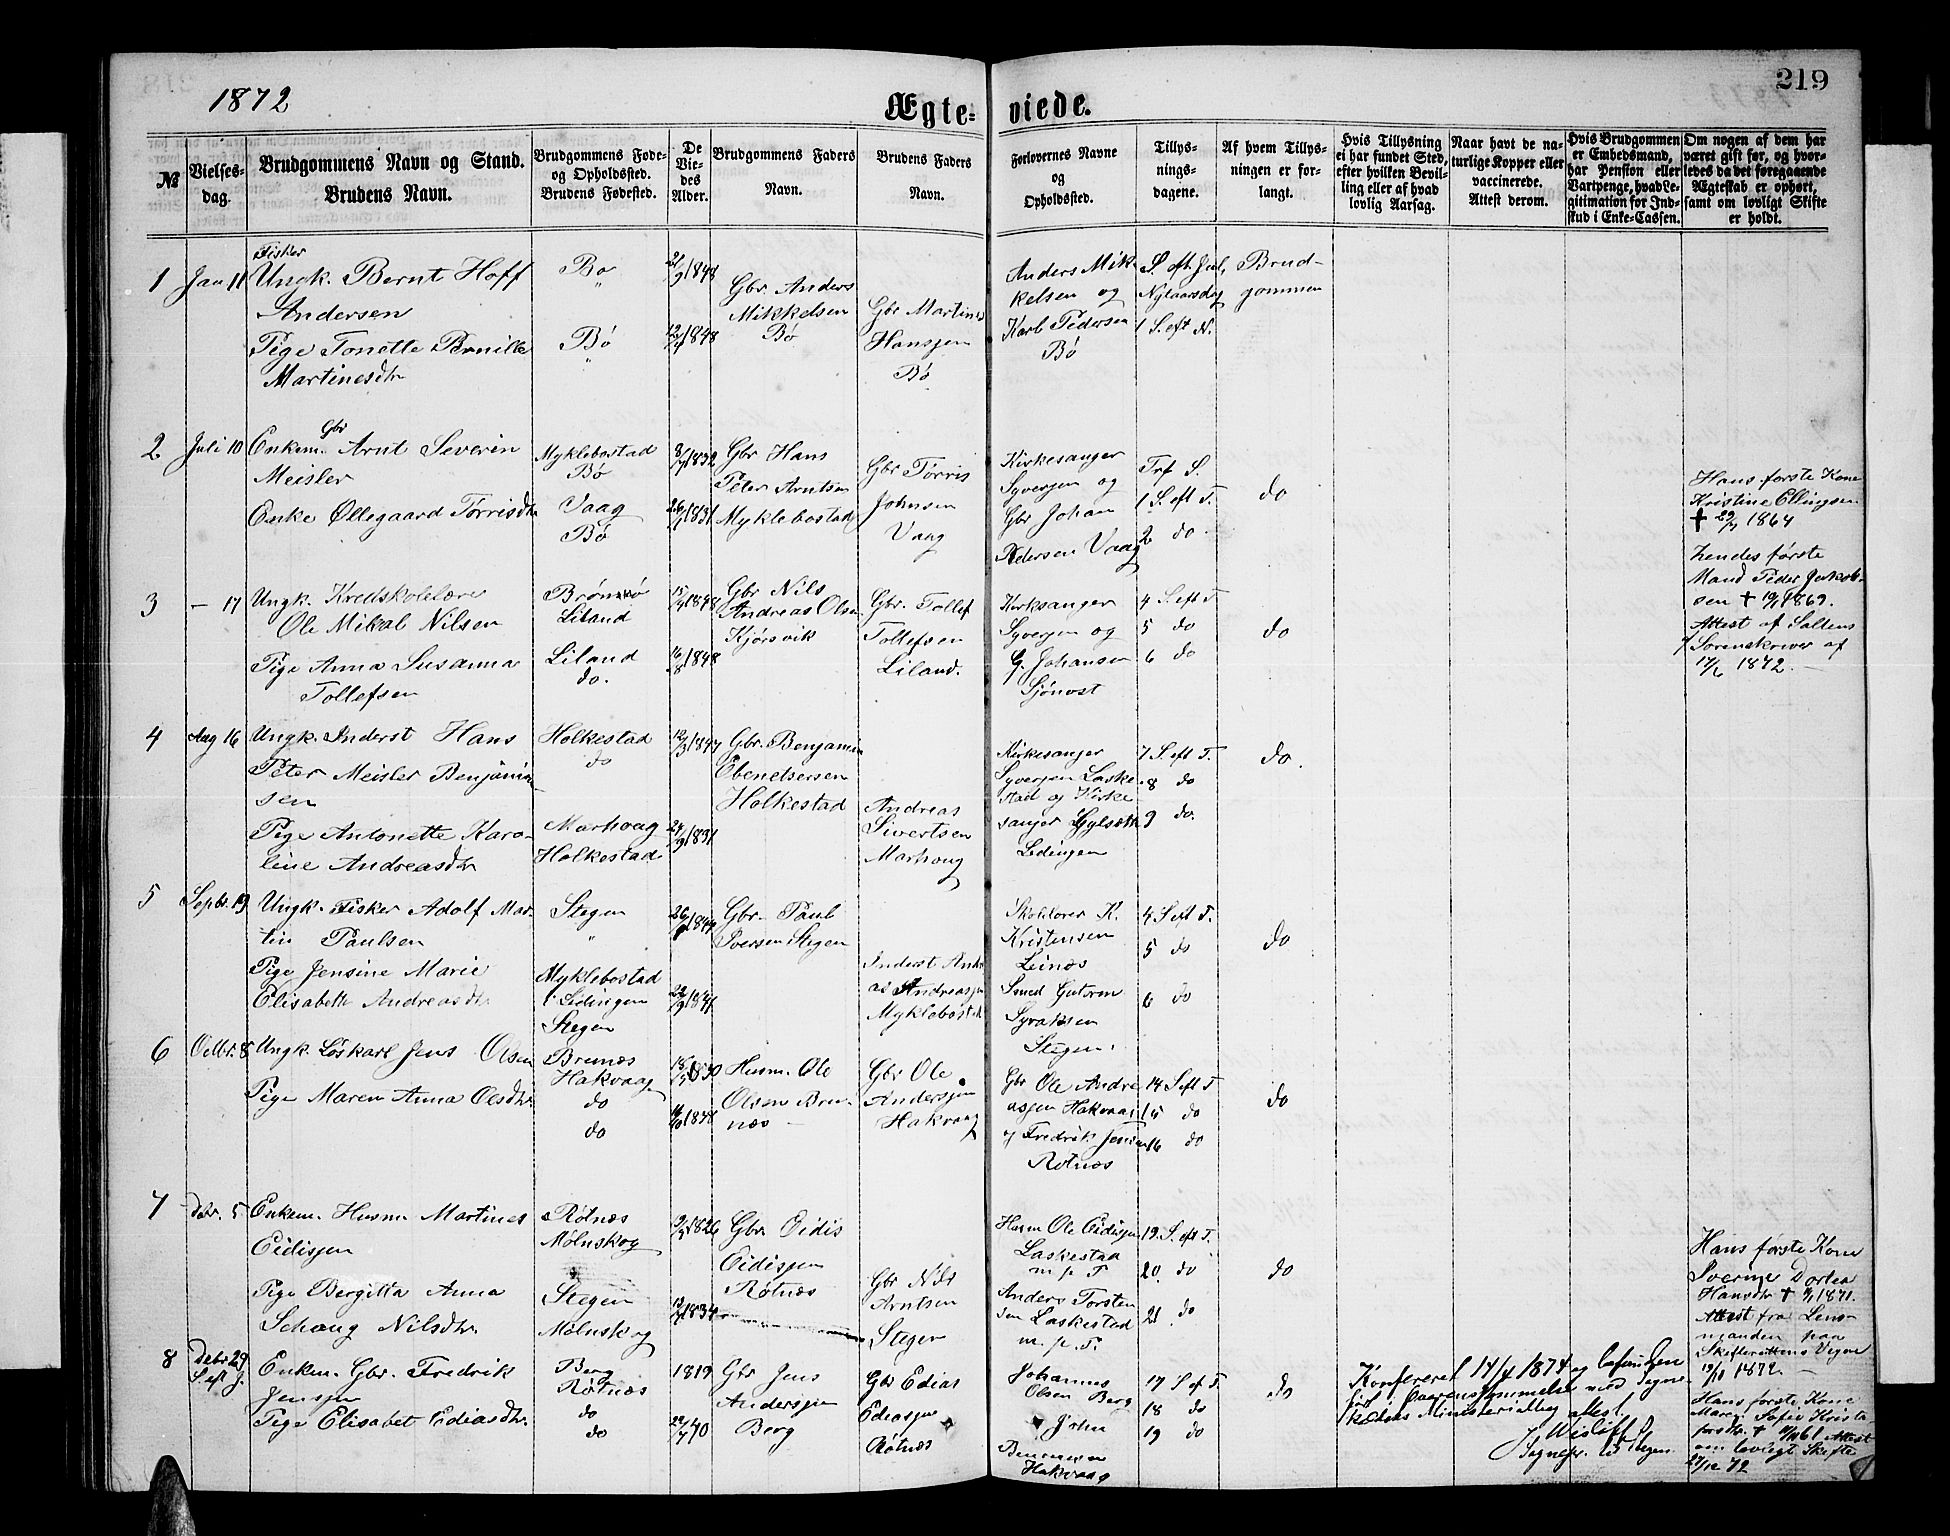 1872
Ægte-
viede.
219
№
Vielses-
dag.
Brudgommens Navn og Stand.
Brudens Navn.
Brudgommens Føde-
og Opholdssted.
Brudens Fødested.
De
Vie-
des
Alder.
Brudgommens Faders
Navn.
Brudens Faders
Navn.
Forlovernes Navne
og
Opholdssted.
Tillys-
nings-
dagene.
Af hvem Tillys-
ningen er for-
langt.
Hvis Tillysning
ei har fundet Sted,
efter hvilken Bevil-
ling eller af hvad
lovlig Aarsag.
Naar havt de na-
turlige Kopper eller
vaccinerede.
Attest derom.
Hvis Brudgommen
er Embedsmand,
har Pension eller
Vartpenge, hvad Le-
gitimation for Ind-
skud i Enke-Cassen.
Om nogen af dem har
været gift før, og hvor-
ledes da det foregaaende
Ægteskab er ophørt,
samt om lovligt Skifte
er holdt.
1
Jan 11
Fisker
Ungk. Bernt Hoff
Andersen
Pige Tonette Pernille
Martinesdtr
Bø
"
Bø
"
21/9 1848
12/4 1848
Gbr. Anders
Mikkelsen
Bø
Gbr Martines
Hansjen
Bø
Anders Mik-
kelsen og
Karl Pedersen
Bø
S. eft. Jul,
Nytaarsdag
1 S. eft N.
Brud-
gommen
2
Juli 10
Gbr
Enkem. Arnt Severin
Meisler
Enke Øllegaard Torrisdtr
Myklebostad
Bø
Vaag
Bø
8/7 1832
26/1 1831
Gbr Hans
Peter Arntsen
Myklebostad
Gbr Torris
Johnsen
Vaag
Kirkesanger
Syversen og
Gbr Johan
Pedersen Vaag
Trf S.
1 S. eft T.
2 do.
do
Hans første Kone
Kristine Ellingsen
† 29/7 1864
hendes første
Mand Peder Jakob-
sen † 19/1 1869.
Attest af Saltens
Sorenskriver af
17/6 1872.
3
— 17
Ungk. Kredsskolelærer
Ole Mikal Nilsen
Pige Anna Susanna
Tollefsen
Brønnø
Liland
Liland
do.
15/4 1848
16/8 1848
Gbr Nils
Andreas Olsen
Kjørsvik
Gbr. Tollef
Tollefsen
Liland.
Kirksanger
Syversen og
G. Johansen
Sjønost
4 S. eft T
5 do
6 do
do
4
Aug 16
Ungk. Inderst Hans
Peter Meisler Benjamin-
sen
Pige Antonette Karo-
line Andreasdtr
Holkestad
do
Marhaug
Holkestad
12/3 1847
24/9 1831
Gbr. Benjamin
Ebenetsersen
Holkestad
Andreas
Sivertsen
Marhaug
Kirkesanger
Syversen Laske-
stad og Kirke-
sanger Gylseth
Ledingen
7 S. eft T.
8 do
9 do.
do.
5
Septbr. 19
Ungk. Fisker Adolf Mar-
tin Paulsen
Pige Jensine Marie
Elisabeth Andreasdtr.
Stegen
"
Myklebostad
i Ledingen
Stegen
Gbr. Paul
Iversen Stegen
Inderst Andre-
as Andreasjen
Myklebostad
Skolelærer K.
Kristensen
Leinæs
Smed Gutorm
Syvaktsen
Stegen.
4 S. eft T.
5 do
6 do
do
6
Octbr. 8
Ungk. Løskarl Jens Olsen
Pige Maren Anna Olsdtr.
Brunæs
Hakvaag
do
do
Husm. Ole
Olsen Bru-
næs —
Gbr Ole
Andersjen
Hakvaag
Gbr Ole Andre
asjen Hakvaag
og Fredrik Jensen
Røtnæs
14 S. eft T
15 do
16 do
do
7
Debr. 5
Enkem. Husm Martines
Eidisjen
Pige Bergitta Anna
Schaug Nilsdtr.
Røtnæs
Mølnskog
Stegen
Mølnskog
9/3 1826
13/4 1834
Gbr Eidis
Eidisjen
Røtnæs
Gbr Nils
Arntsen
Stegen
Husm Ole Eidisjen
Laskestad
m. p. F
Anders Torsten
sen Laskestad
m. p. F.
19 S. eft T.
20 do
21 do
do
Hans første Kone
Sverine Dortea
Hansdtr † 9/1 1871.
Attest fra Lens-
manden paa
Skifterettens Vegne
19/11 1872. —
8
Debr 29
S eft J.
Enkem. Gbr. Fredrik
Jensjen
Pige Elisabet Ediasdtr.
Berg
Røtnæs
do
do
1819
22/7 40
Gbr Jens
Andersjen
Berg
Gbr Edias
Ediasjen
Røtnæs
Johannes
Olsen Berg
John
Hakvaag
17 S. eft T.
18 do
19 do
do
Konfereret 14/4 1874 og befunden
ført i Overensstemmelse med Sogne-
kaldets Ministerialbog attest.
Wisløff
Sognepr. til Stegen
Hans første Kone
Maren Sofie Krista-
forsdtr † 11/11 61 Attest
om lovligt Skifte
27/12 72